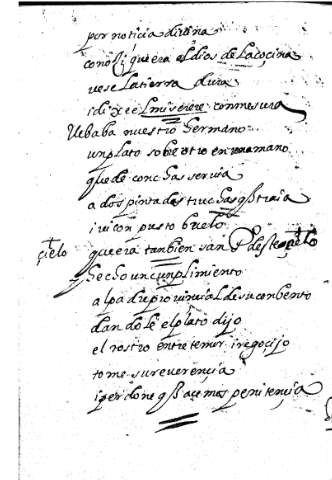 por noticia divina
conoçi q̃ era al dios de la coçina
vese la tierra dura
i dixe el miserere con mesura
llebaba nuestro hermano
un plato sobre otro en una mano
que de conchas servia
a dos pintadas truchas q̃ traia
i vi con pusto buelo
çielo que era tanbien san P.º deste çielo
hecho un cunplimiento
al padre provinçial de su conbento
dandole el plato dijo
el rostro entretener i regoçijo
tome su reverençia
i perdone q̃ haçemos penitençia